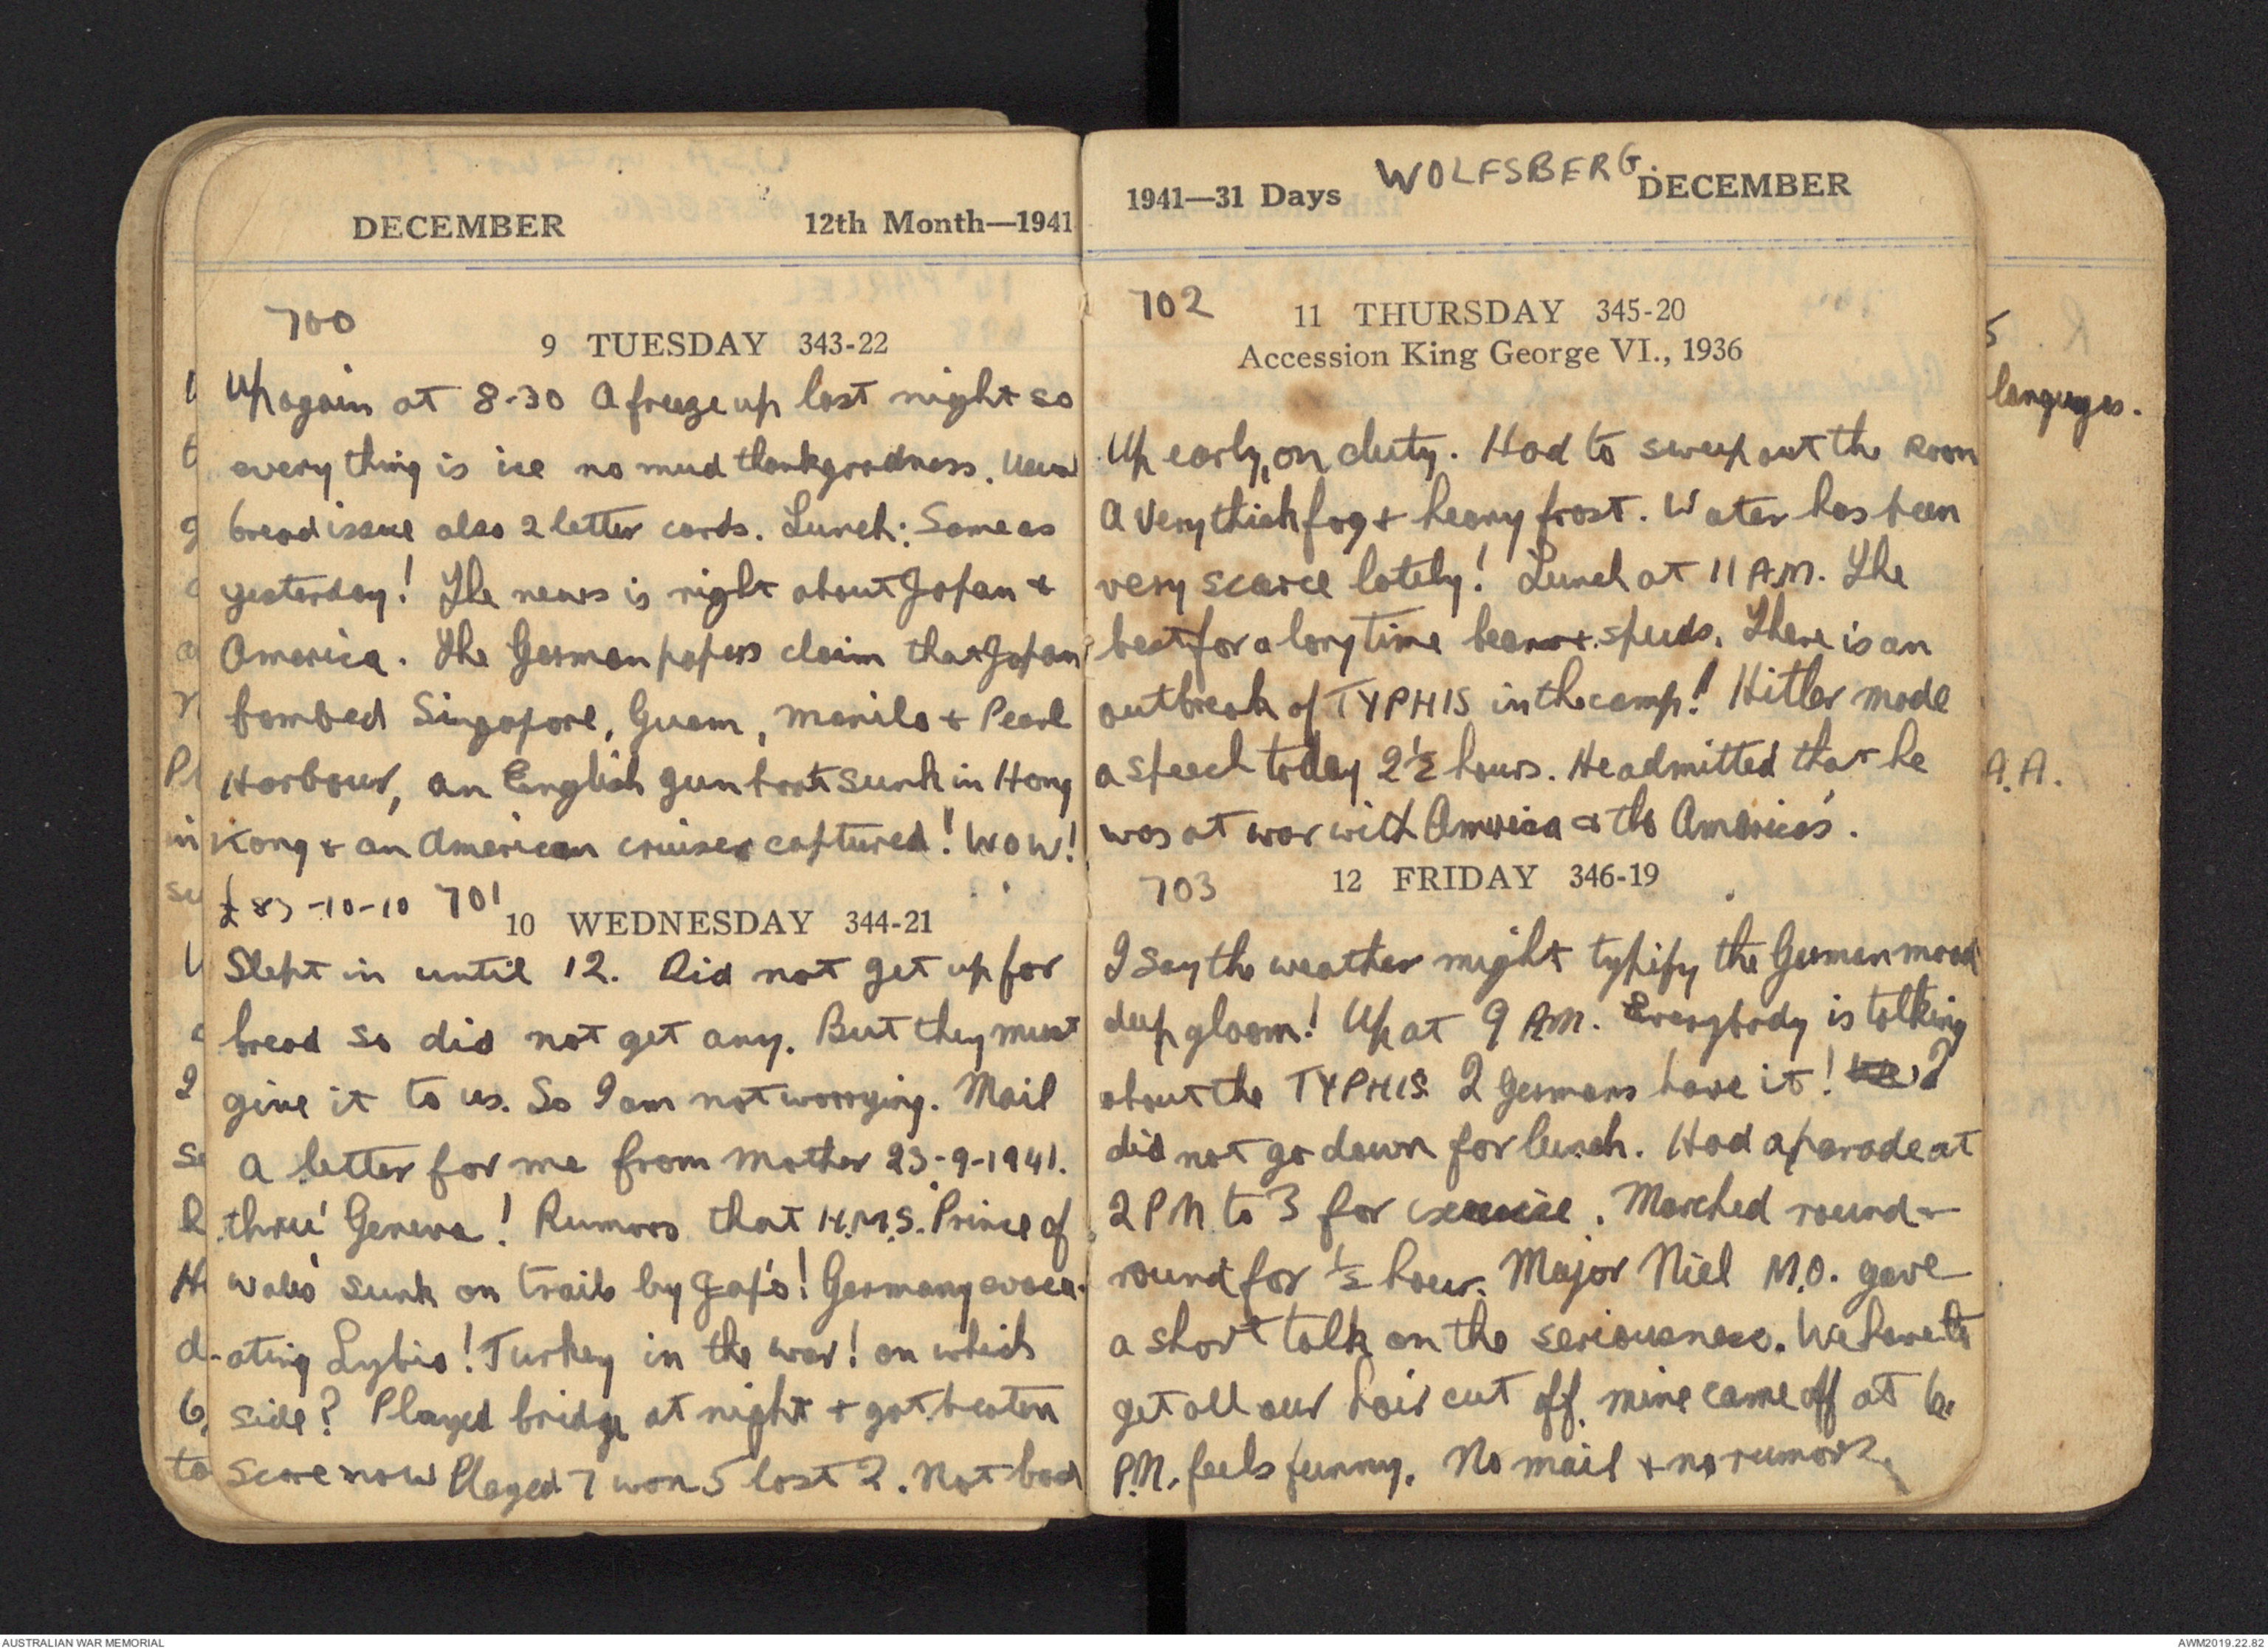 DECEMBER 12th Month—1941
700
9 TUESDAY 343-22
Up again at 8-30 A freeze up last night so
everything is ice no mud thank goodness. Usual
bread issue also 2 letter cards. Lunch: Same as
yesterday! The news is right about Japan +
America. The German papers claim that Japan
bombed Singapore, Guam, Manila + Pearl
Harbour, an English gunboat sunk in Hong
Kong + an American cruiser captured! WOW!
£83-10-10 701
10 WEDNESDAY 344-21
Slept in until 12. Did not get up for
bread so did not get any. But they must
give it to us. So I am not worrying. Mail
A letter for me from Mother 23-9-1941.
thru' Geneva! Rumors that H.M.S. Prince of
Wales sunk on trails by Jap's! Germany evacu-
ating Lybia! Turkey in the war! on which
side? Played bridge at night + got beaten
Score now Played 7 won 5 lost 2. Not bad
1941—31 Days WOLFSBERG. DECEMBER
702
11 THURSDAY 345-20
Accession King George VI., 1936
Up early, on duty. Had to sweep out the room
A very thick fog + heavy frost. Water has been
very scarce lately! Lunch at 11 A.M. The
best for a long time beans + spuds. There is an
outbreak of TYPHIS in the camp! Hitler made
a speech today 2½ hours. He admitted that he
was at war with America & the Americas.
703
12 FRIDAY 346-19
I say the weather might typify the German mood
deep gloom! Up at 9 A.M. Everybody is talking
about the TYPHIS 2 Germans have it!
did not go down for lunch. Had a parade at
2 PM to 3 for exercise. Marched round +
round for ½ hour. Major Niel M.O. gave
a short talk on the seriousness. We have to
get all our hair cut off. mine came off at 6.
P.M. feels funny. No mail + no rumors.
languages.
A.A.
AUSTRALIAN WAR MEMORIAL
AWM2019.22.82